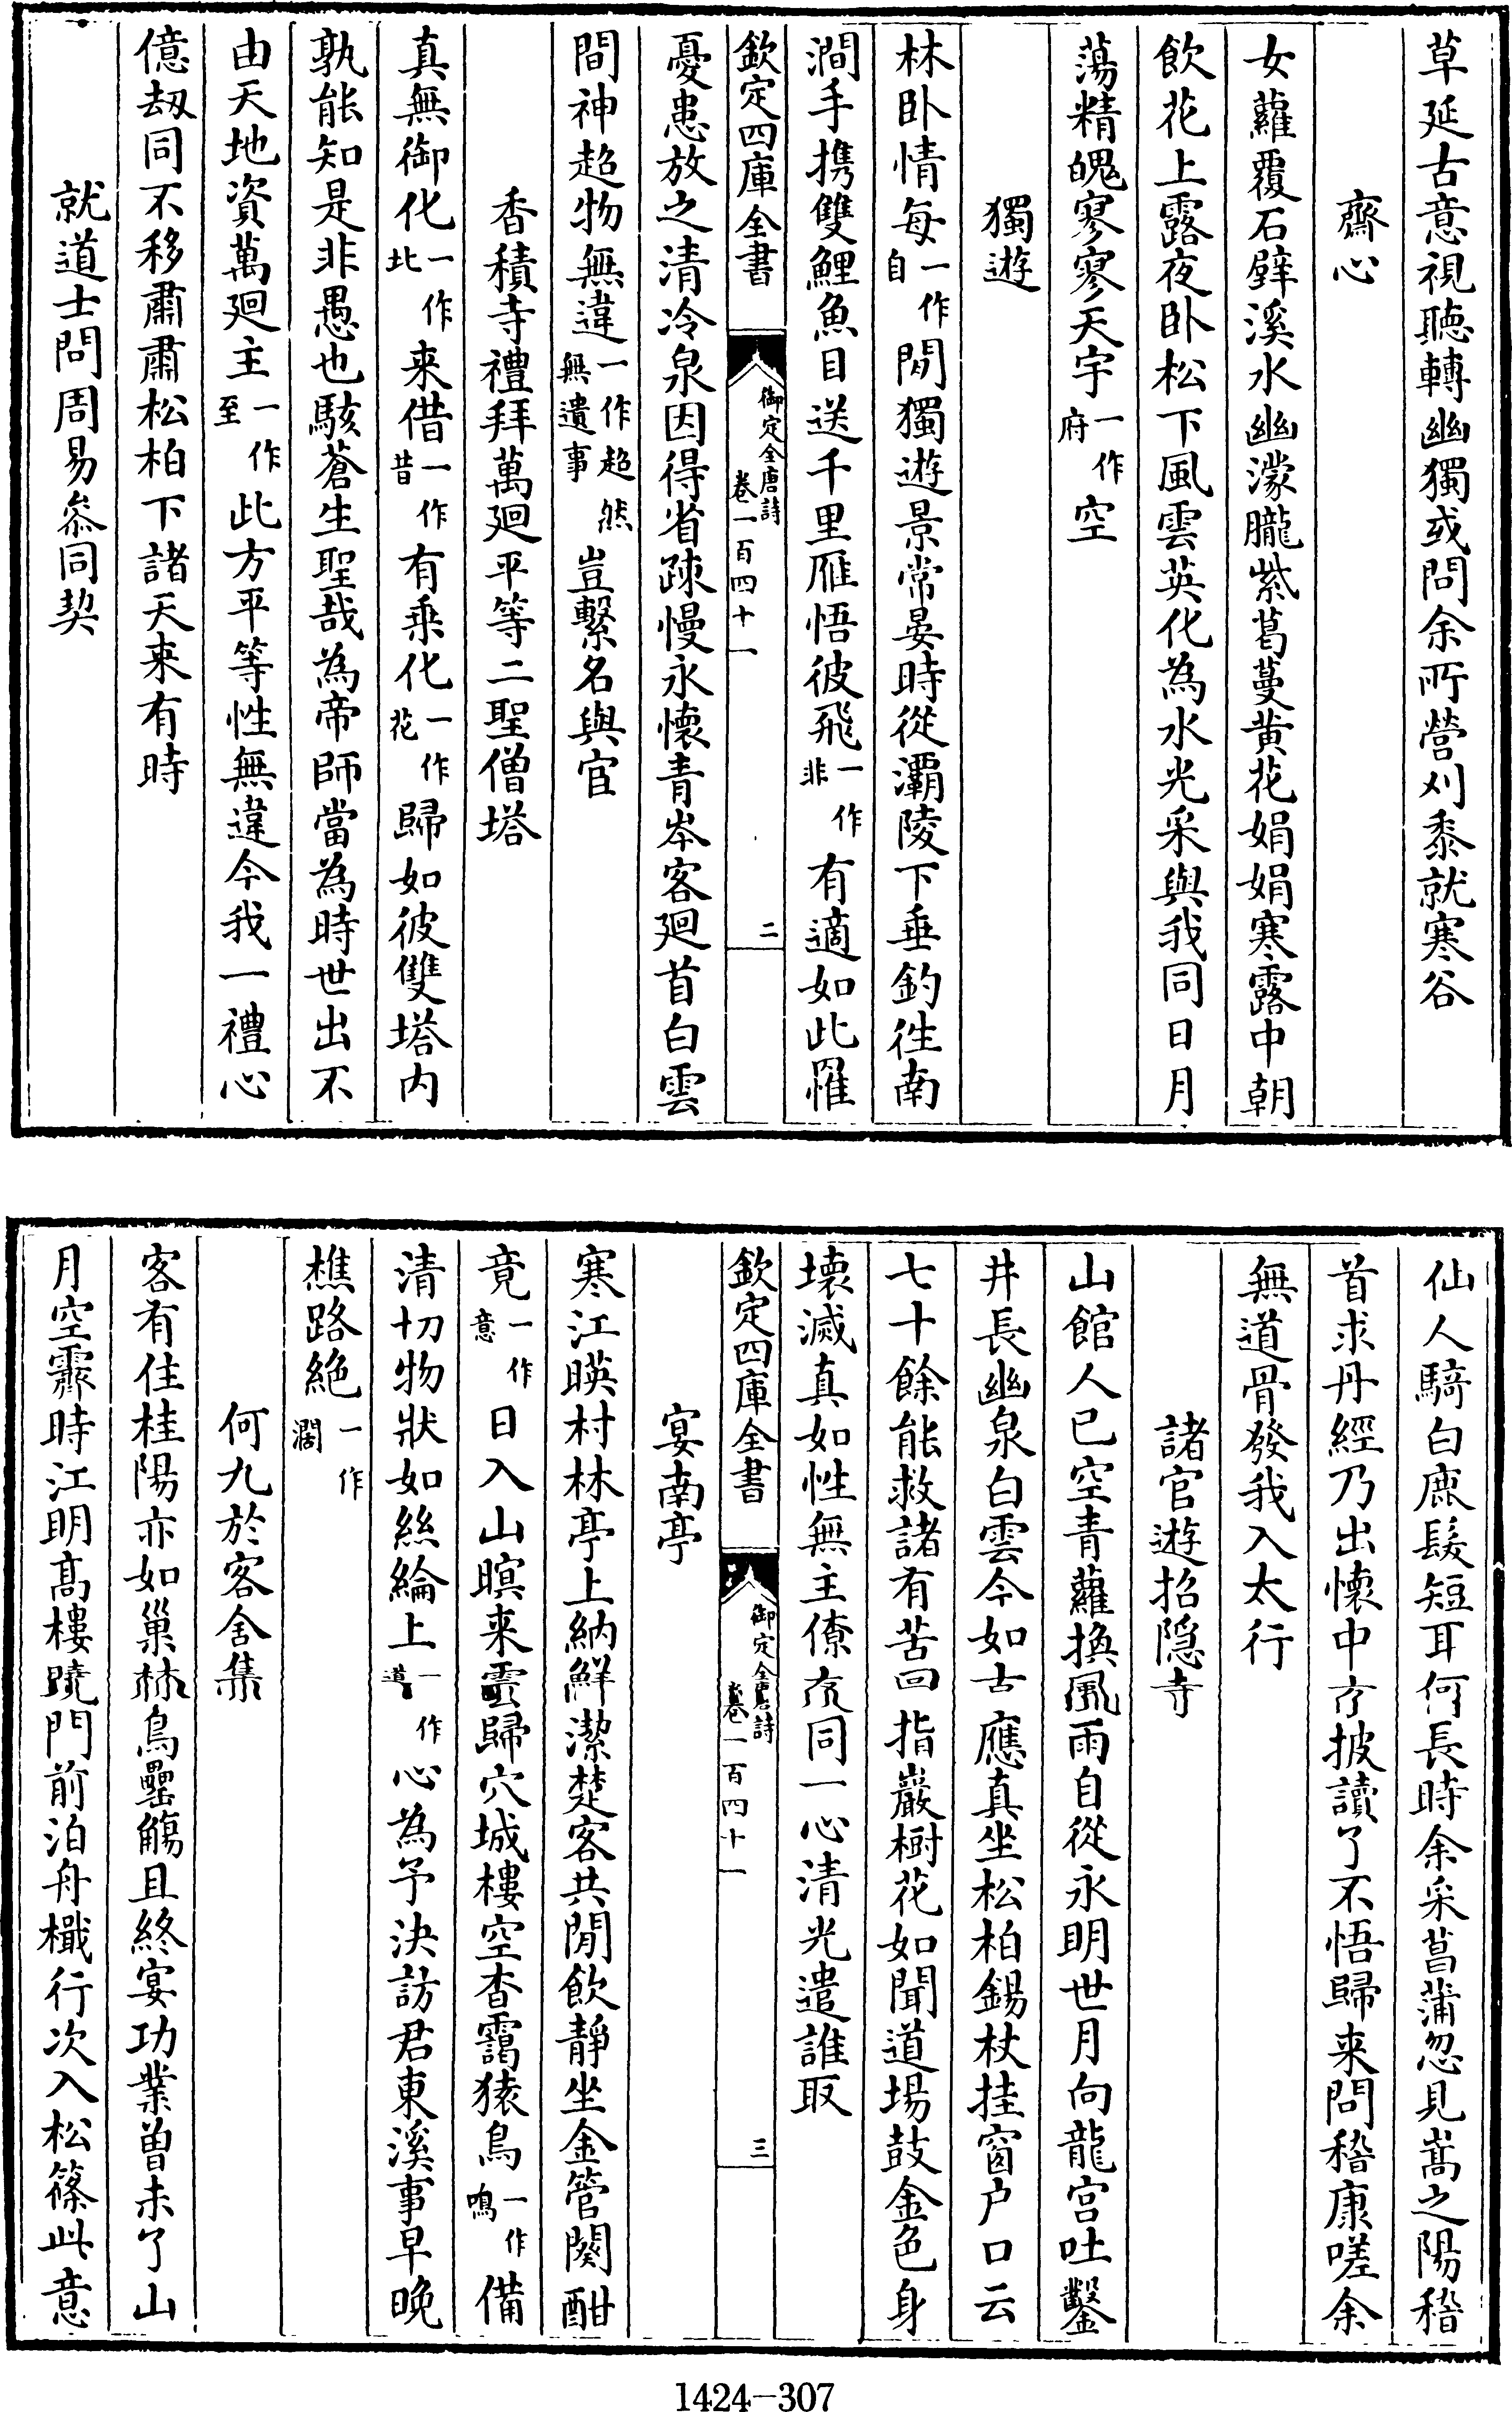 草延古意視聽轉幽獨或問余所營刈黍就寒谷
齋心
女蘿覆石壁溪水幽濛朧紫葛蔓黄花娟娟寒露中朝
飲花上露夜卧松下風雲英化為水光采與我同日月
蕩精魄寥寥天宇一作府空
獨遊
林卧情每一作自閒獨遊景常晏時從灞陵下垂釣徃南
澗手攜雙鯉魚目送千里雁悟彼飛一作非有適如此罹
欽定四庫全書
御定全唐詩
卷一百四十一
二
憂患放之清冷泉因得省疎慢永懷青岑客廻首白雲
間神超物無違一作超然無遺事豈繫名與宦
香積寺禮拜萬廻平等二聖僧塔
真無御化一作北来借一作昔有乗化一作花歸如彼雙塔内
孰能知是非愚也駭蒼生聖哉為帝師當為時世出不
由天地資萬廻主一作至此方平等性無違今我一禮心
億刼同不移肅肅松柏下諸天来有時
就道士問周易叅同契
仙人騎白鹿髮短耳何長時余采菖蒲忽見嵩之陽稽
首求丹經乃出懷中方披讀了不悟歸来問嵇康嗟余
無道骨發我入太行
諸官遊招隠寺
山館人已空青蘿換風雨自從永明世月向龍宫吐鑿
井長幽泉白雲今如古應真坐松柏錫杖挂窗户口云
七十餘能救諸有苦回指巖樹花如聞道場鼓金色身
壊滅真如性無主僚亦同一心清光遣誰取
欽定四庫全書
御定全唐詩
卷一百四十一
三
宴南亭
寒江暎村林亭上納鮮潔楚客共閒飲靜坐金管闋酣
竟一作意日入山暝来雲歸穴城樓空杳靄猿鳥一作鳴備
清切物狀如絲綸上一作道心為予決訪君東溪事早晚
樵路絶一作濶
何九於客舍集
客有住桂陽亦如巢林鳥罍觴且終宴功業曾未了山
月空霽時江明髙樓曉門前泊舟檝行次入松篠此意
1424-307